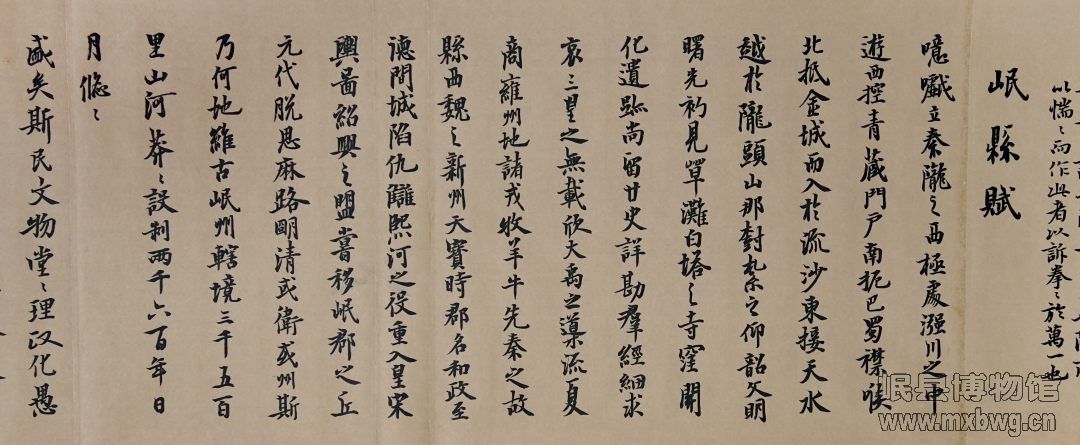 以惴々而作此者以訴拳々於萬一也
岷縣賦
噫嚱立秦隴之西極處漒川之中
遊西控青藏門戶南扼巴蜀襟喉
北抵金城而入於流沙東接天水
越於隴頭山那對紮之仰韶文明
曙光初見單灘白塔之寺窪開
化遺跡尚留廿史詳勘羣經細求
哀三皇之無載欣大禹之導流夏
商雍州地諸戎牧羊牛先秦之故
縣西魏之新州天寶時郡名和政至
德間城陷仇讎熙河之役重入皇宋
輿圖紹興之盟嘗移岷郡之丘
元代脫思麻路明清或衛或州斯
乃何地維古岷州轄境三千五百
里山河莽々設制兩千六百年日
月悠々
盛矣斯民文物堂々理政化愚
岷县博物馆
www.mxbwg.cn